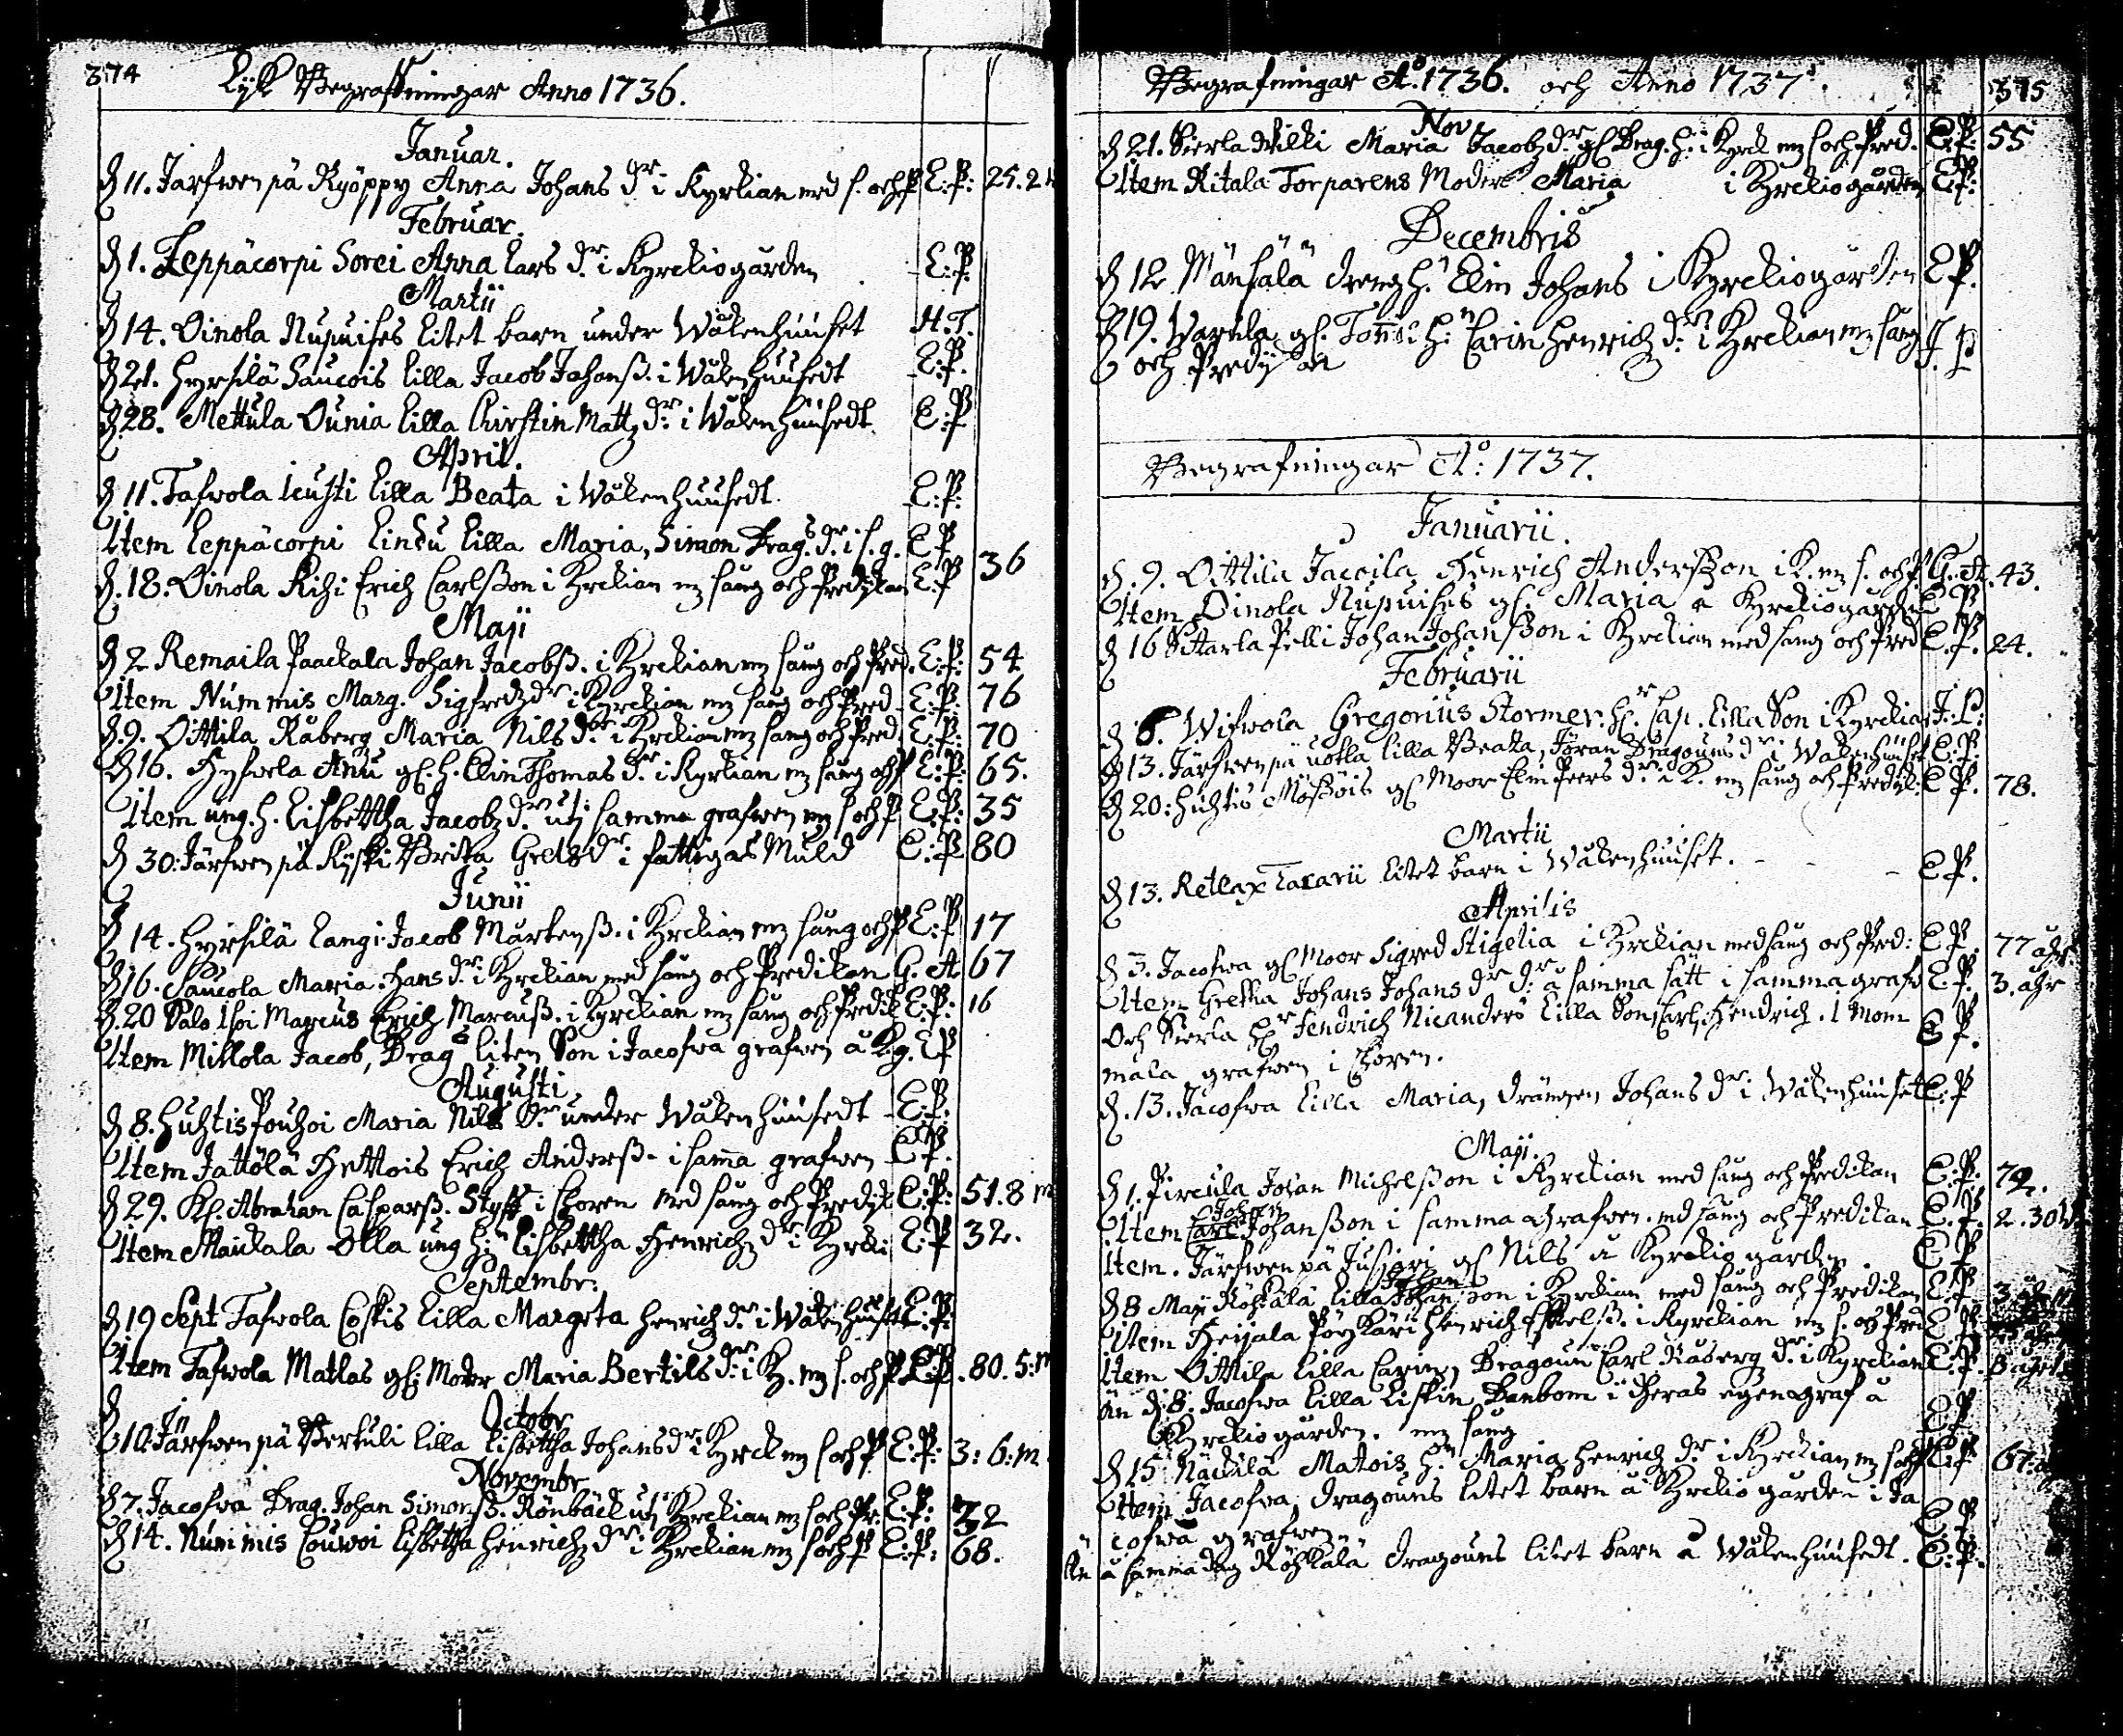 374
Lijk Begrafningar Anno 1736.
Januar.
D 11. Jarfwen pä Kyöppy Anna Johans dr i Kyrkian med s. och P E:P: 25.2
Februar.
D 1. Leppäcorpi Sorei Anna Lars dr i Kyrkiogården E:P.
Martii
D 14. Oinola Nupuises litet barn under Wåkenhuuset H.T.
D 21. Hyrsilä Saucois lilla Jacob Johanß. i Wåkenhuusedt E:P.
D 28. Mettula Ounia lilla Chirstin Matz dr. i Wåkenhuusedt E:P
April.
D 11. Tafwola Icusti lilla Beata i Wåkenhuusedt. E:P:
Item Leppäcorpi Lindu lilla Maria, Simon Drag.s dr. i s. g. E P
D. 18. Oinola Kihi Erich Carlßon i Kyrkian mz sång och Predikan E:P 36
Maji
D 2 Remaila Paackala Johan Jacobß. i Kyrkian mz sång och Pred. E:P: 54
Item Nummis Marg. Sigfredz dr i Kyrckian mz sång och Pred E:P: 76
D. 9. Oittila Råberg Maria Nils dr. i Kyrkian mz sång och Pred. E:P: 70
D 16. Hyfwela Anu gl. H. Elin Thomas dr. i Kyrkian mz sång och P E:P: 65.
Item ung. H. Lisbettha Jacobz dr. utj samma grafwen mz s och P E:P: 35
D 30: Järfwen pä Kyski Brita Grels dr i fattigas Muld E:P 80
Junii
D 14. Hyrsilä Langi Jacob Mårtenß. i Kyrkian mz sång och P E:P 17
D 16. Saucola Maria Hans dr. i Kyrckian med sång och Predikan G. A 67
D. 20 Salo Isoi Marcus Erich Marcuß. i Kyrckian mz sång och Predik E:P: 16
Item Millola Jacob, Drags liten Son i Jacofwa grafwen å K.g. E P
Augusti
D 8. Huhtis Pouhoi Maria Nils dr under Wåkenhuusedt E:P:
Item Jattölä Hettois Erich Anderß. i samma grafwen E:P.
D 29. Kl. Abraham Casparß. Styff i Choren med sång och Predik E:P: 51. 8 m
Item Maickala Olla ung H:n Lisbettha Henrichz dr i Kyrki E:P 32.
Septembr:
D 19 Sept Tafwola Coskis lilla Margeta Henrich dr. i Wåkenhuuset E:P.
Item Tafwola Matlas gl: Moder Maria Bertils dr. i K. mz s. och P. E:P. 80. 5: m
D Octobr
10. Järfwen pä Pertuli lilla Lisbettha Johans dr i Kyrck mz s och P E:P: 3: 6: m
Novembr
D 7. Jacofwa Drag. Johan Simonß. Rönbäck utj Kyrckian mz s och Pr. E:P: 32
D 14. Nummis Couwoi Lisbettha Henrichz dr. i Kyrkian mz s och P E:P: 68.
Begrafningar A:o 1736. och Anno 1737. 375
Nov.
D 21. Sierla Wilki Maria Jacobz dr. gl Drag. H. i Kyrck mz s och Pred. E:P: 55
Item Kitala Torparens Moder Maria i Kyrckiogården E:P:
Decembris
D 12 Mänsälä dreng H:n Elin Johans i Kyrckiogården E P.
D 19. Warila gl. Tonni H:n Carin Henrich dr. i Kyrckian mz sång J. P
och Predijkan
Begrafningar A:o 1737.
Januarii.
D. 9. Oittila Jaccila Henrich Anderßon i K. mz s. och P. G. A. 43.
Item Oinola Nupuises gl. Maria å Kyrckiogården E P.
D 16 Sittarla Pelli Johan Johanßon i Kyrckian med sång och Pred E.P. 24.
Februarii
D 6. Wifwola Gregorius Stormer. Hr. Cap. lilla Son i Kyrckian J:P:
D 13. Järfwen pä uotla lilla Beata, Jöran Dragouns dr i Wåkenhuuset E:P:
D 20: Huhtis Mößöis gl Moor Elin Peers dr. i K. mz sång och Predik: E P. 78.
Martii
D 13. Retlax Tacarii litet barn i Wåkenhuuset. E:P.
Aprilis
D 3. Jacofwa gl Moor Sigred Stigelia i Kyrckian med sång och Pred: E P. 77 ahr.
Item Gretha Johans Johans dr dr. å samma sätt i samma grafw E.P. 3. ahr
Och Sierla Hr Fendrich Nicanders lilla Son, Carl Hendrich. I Mom
mala grafwen i Choren. E P.
D. 13. Jacofwa lilla Maria, Drängen Johans dr i Wåkenhuuset E:P
Maji.
D 1. Pircula Johan Michelßon i Kyrckian med sång och Predikan E:P: 72.
Johan
Item Carl Johanßon i samma Grafwen. md sång och Predikan E.P. 2. 30 W
Item. Järfwen pä Jussari gl Nils å Kyrckiogården. E P
Johan
D 8 Maji Röhkälä lilla Johan son i Kyrckian med sång och Predikan E.P.
Item Heijala Pöyhkäri Henrich Eskelß. i Kyrckian mz s. og Pred E P
Item Oittila lilla Carin, Dragoun Carl Råberg dr. i Kyrckian E:P.
än d. 8. Jacofwa lilla Liskin Danbom i theras egen graf å
Kyrckiogården. mz sång E P
D 15 Näckilä Matois H:n Maria Henrich dr i Kyrckian mz s och P E:P 67.
Item Jacofwa, dragouns litet barn å Kyrckiogården i Ja
cofwa grafwen E P
Än å samma dag Röhkälä dragouns litet barn å Wåkenhuusedt. E:P.